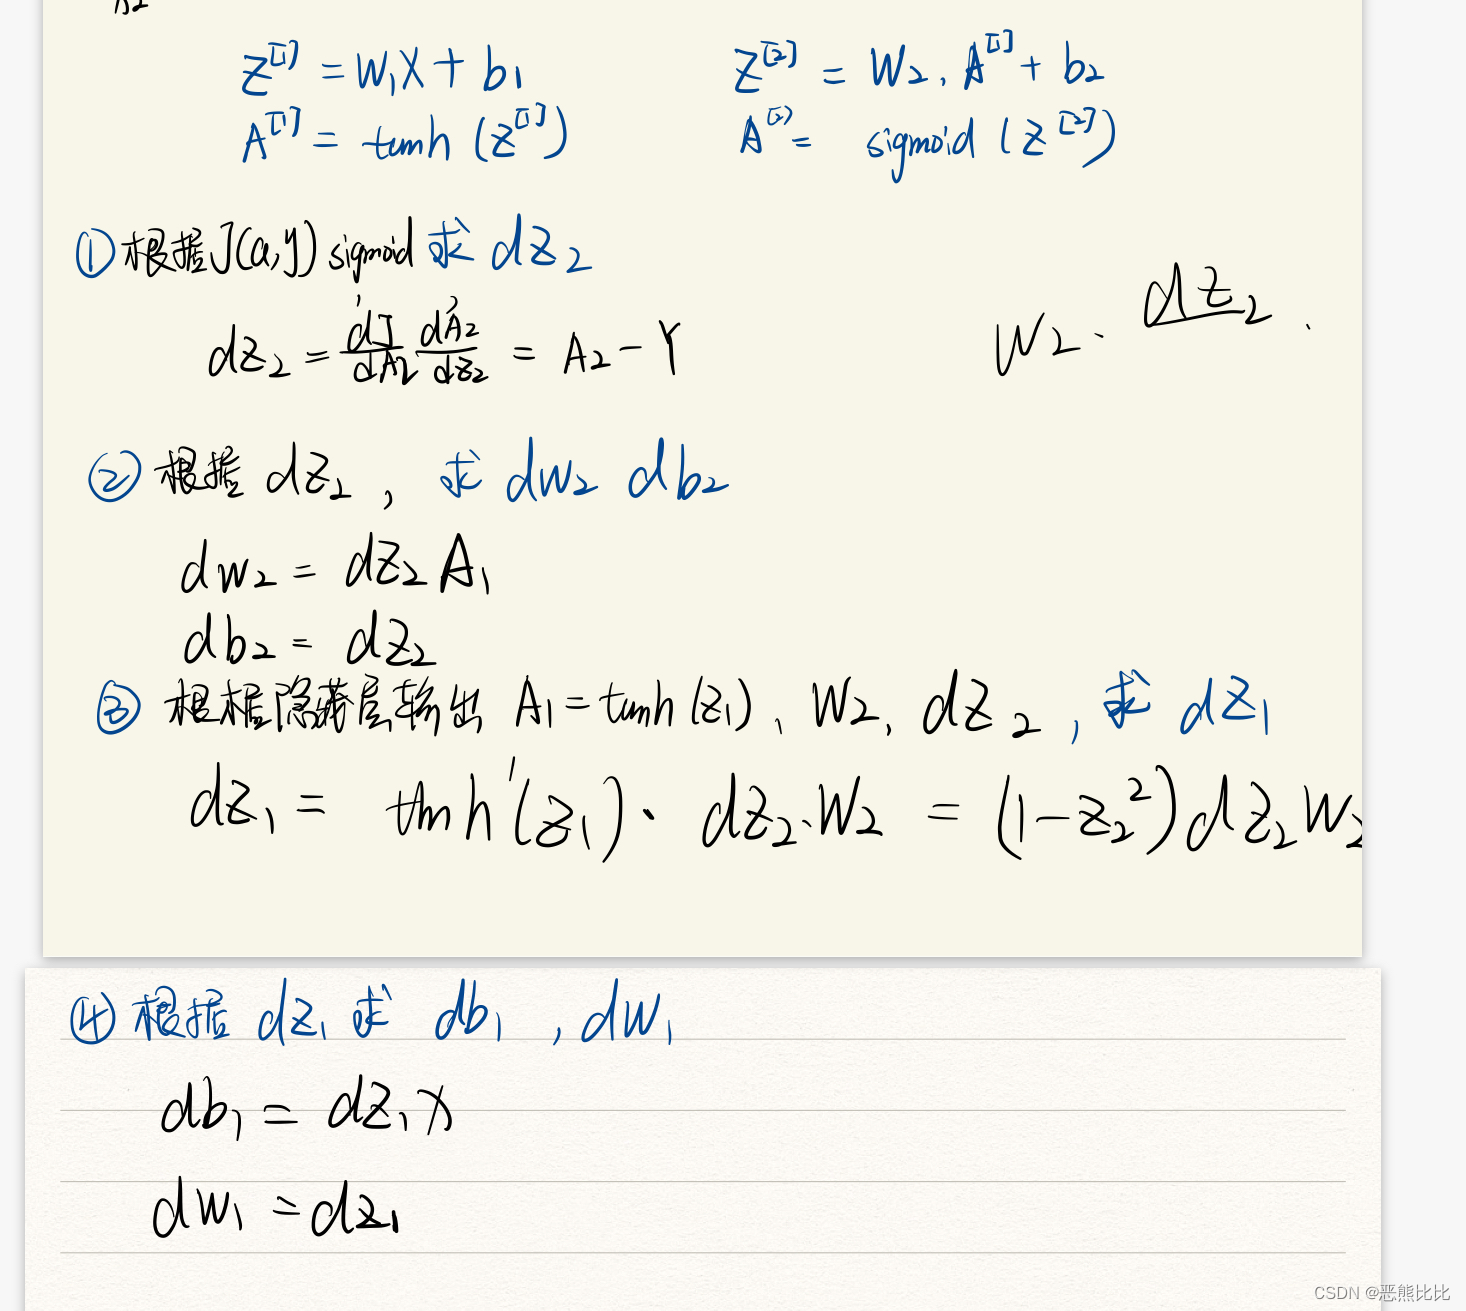 A2
Z^[1] = W₁X + b₁ Z^[2] = W₂. A^[1] + b₂
A^[1] = tanh (Z^[1]) A^[2] = sigmoid (Z^[2])
① 根据J(a,y) sigmoid 求 dZ₂
dZ₂ = dJ/dA₂ dA₂/dZ₂ = A₂ - Y
W₂ · dZ₂ .
② 根据 dZ₂ , 求 dW₂ db₂
dW₂ = dZ₂ A₁
db₂ = dZ₂
③ 根据隐藏层输出 A₁ = tanh (Z₁)、W₂, dZ₂, 求 dZ₁
dZ₁ = tanh'(Z₁) · dZ₂.W₂ = (1-Z₂²)dZ₂W₂
④ 根据 dZ₁ 求 db₁ , dW₁
db₁ = dZ₁X
dW₁ = dZ₁
CSDN @恶熊比比